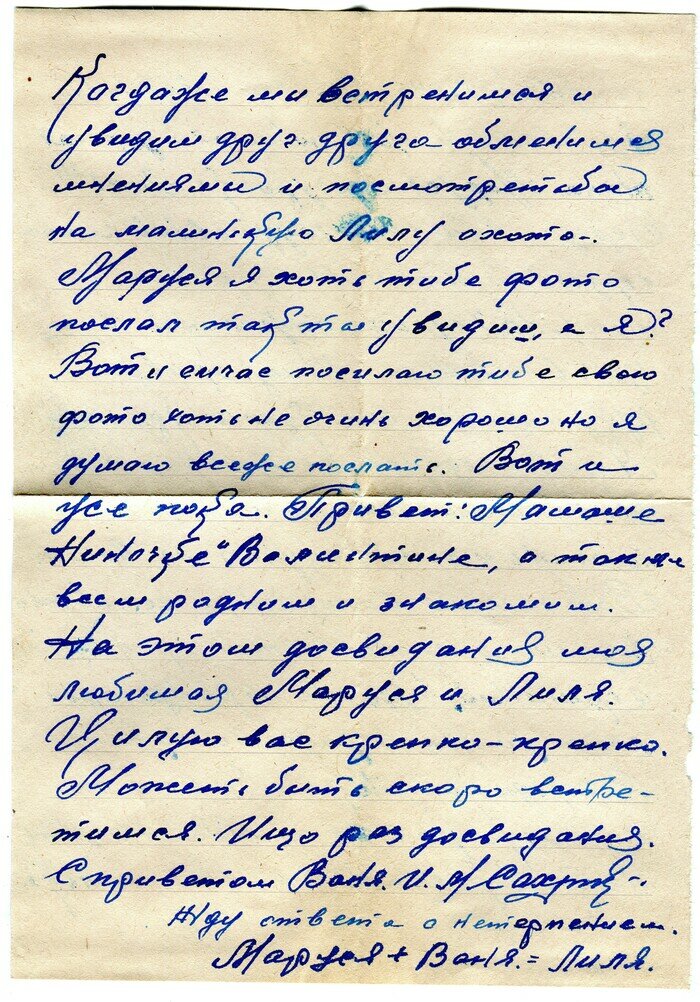 Когдаже ми встренимся и
увидим друг друга обменимся
мнениями и посмотрет бы
на малинькую Лилу охото-.
Маруся я хоть тибе фото
послал так ты увидиш, а я?
Вот и сичас посилаю тибе свою
фото хоть не очинь хорошо но я
думаю вседже послать. Вот и
усе пока. Привет: Мамаше
Ниночке" Валинтине, а так же
всем радним и знакомим.
На этом досвидания моя
любимая Маруся и Лиля.
Цилую вас крепко-крепко.
Можеть быть скоро встре-
тимся. Ищо раз досвидания.
С приветом Ваня. И. М.
Жду ответа с нетерпением.
Маруся + Ваня. = Лиля.